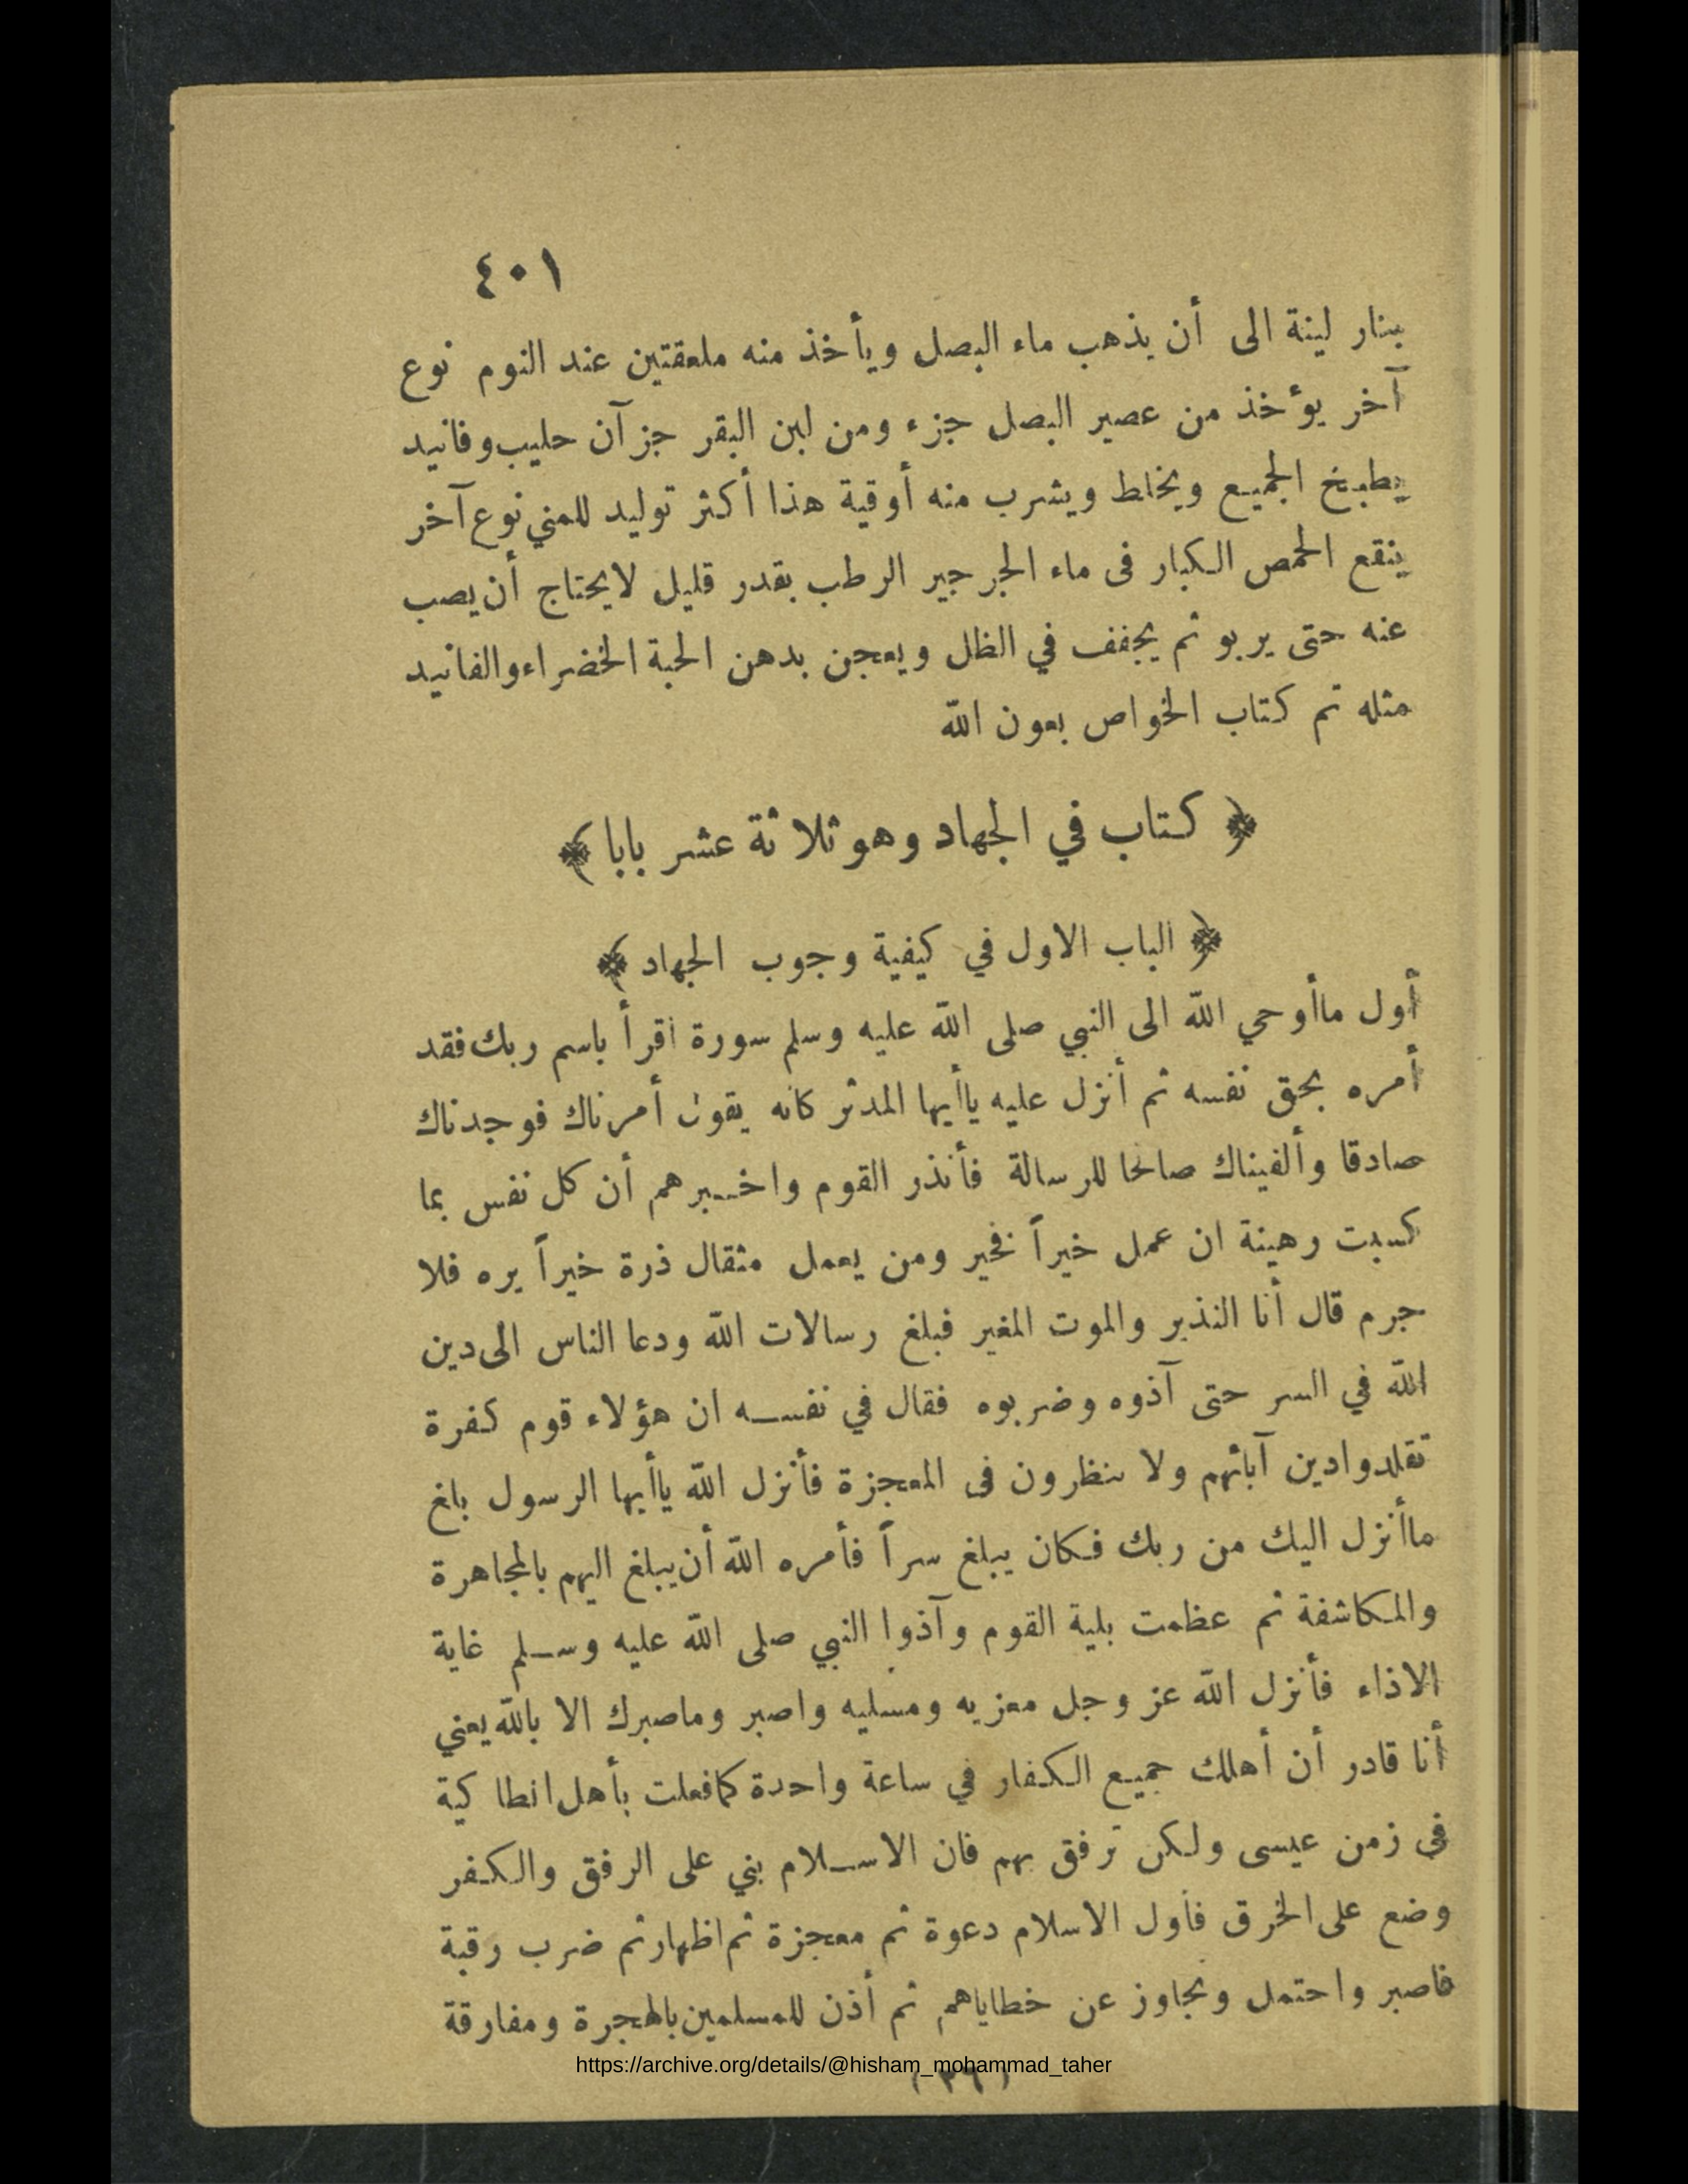 ٤٠١
بنار لينة الى أن يذهب ماء البصل ويأخذ منه ملعقتين عند النوم نوع
آخر يؤخذ من عصير البصل جزء ومن لبن البقر جزآن حليب وفانيد
يطبخ الجميع ويخلط ويشرب منه أوقية هذا أكثر توليد للمني نوع آخر
ينقع الحمص الكبار فى ماء الجرجير الرطب بقدر قليل لايحتاج أن يصب
عنه حتى يربو ثم يجفف في الظل ويعجن بدهن الحبة الخضراء والفانيد
مثله تم كتاب الخواص بعون الله
﴿ كتاب في الجهاد وهو ثلاثة عشر بابا ﴾
﴿ الباب الاول في كيفية وجوب الجهاد ﴾
أول ماأوحي الله الى النبي صلى الله عليه وسلم سورة اقرأ باسم ربك فقد
أمره بحق نفسه ثم أنزل عليه ياأيها المدثر كانه يقول أمرناك فوجدناك
صادقا وألفيناك صالحا للرسالة فأنذر القوم واخبرهم أن كل نفس بما
كسبت رهينة ان عمل خيراً فخير ومن يعمل مثقال ذرة خيراً يره فلا
جرم قال أنا النذير والموت المغير فبلغ رسالات الله ودعا الناس الى دين
الله في السر حتى آذوه وضربوه فقال في نفسه ان هؤلاء قوم كفرة
تقلدوا دين آبائهم ولا ينظرون فى المعجزة فأنزل الله ياأيها الرسول بلغ
ماأنزل اليك من ربك فكان يبلغ سراً فأمره الله أن يبلغ اليهم بالمجاهرة
والمكاشفة ثم عظمت بلية القوم وآذوا النبي صلى الله عليه وسلم غاية
الاذاء فأنزل الله عز وجل معزيه ومسليه واصبر وماصبرك الا بالله يعني
أنا قادر أن أهلك جميع الكفار في ساعة واحدة كمافعلت بأهل انطاكية
فى زمن عيسى ولكن ترفق بهم فان الاسلام بني على الرفق والكفر
وضع على الخرق فأول الاسلام دعوة ثم معجزة ثم اظهار ثم ضرب رقبة
فاصبر واحتمل وتجاوز عن خطاياهم ثم أذن للمسلمين بالهجرة ومفارقة
https://archive.org/details/@hisham_mohammad_taher